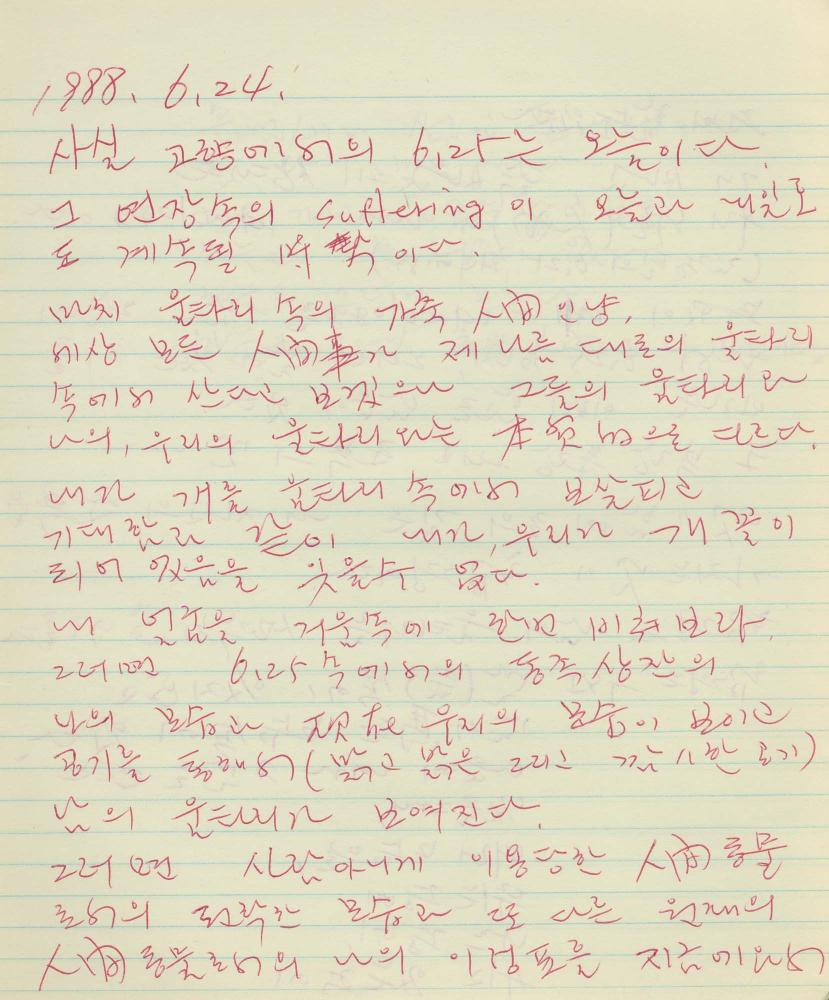 1988. 6. 24.
사실 고향에서의 6.25는 오늘이다.
그 연장속의 suffering이 오늘과 내일로
도 계속될 이다.
마치 울타리 속의 가축 人間인냥.
세상 모든 人間事가 제 나름 대로의 울타리
속에서 산다고 보겠으나 그들의 울타리와
나의, 우리의 울타리와는 本質的으로 다르다.
내가 개를 울타리 속에서 보살피고
기대함과 같이 내가, 우리가 개 꼴이
되어 있음을 잊을수 없다.
내 얼굴을 거울속에 한번 비춰보라.
그러면 6.25 속에서의 동족상잔의
나의 모습과 現在 우리의 모습이 보이고
공기를 통해서 (맑고 맑은 그리고 감시한 공기)
남의 울타리가 보여진다.
그러면 사람아니게 이용당한 人間동물
로서의 타락한 모습과 또 다른 원래의
人間동물로서의 나의 이정표를 지금에와서